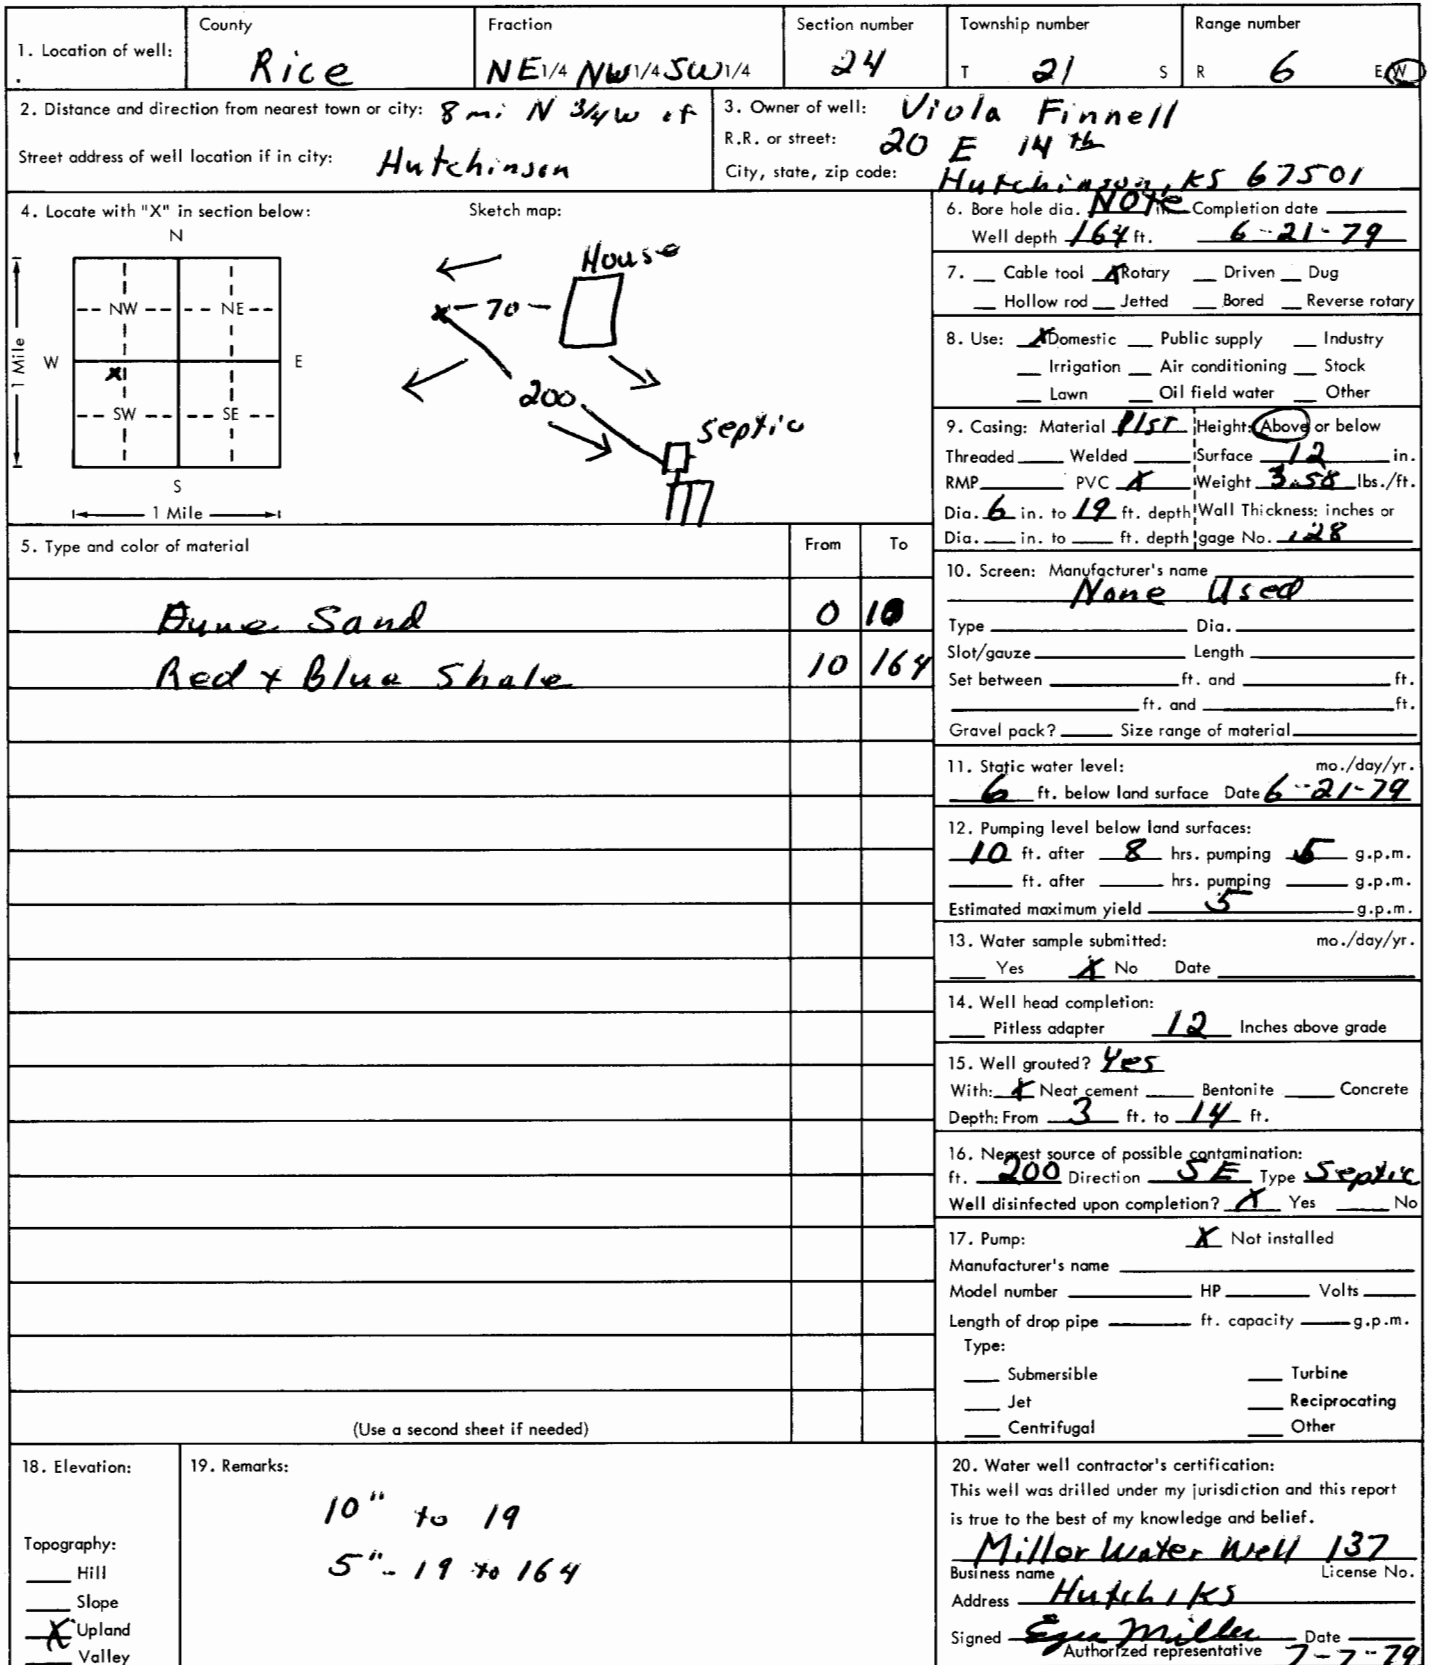 1. Location of well: County Rice Fraction NE 1/4 NW 1/4 SW 1/4 Section number 24 Township number T 21 S Range number R 6 E W
2. Distance and direction from nearest town or city: 8 mi N 3/4 W of
Street address of well location if in city: Hutchinson
3. Owner of well: Viola Finnell
R.R. or street: 20 E 14th
City, state, zip code: Hutchinson, KS 67501
4. Locate with "X" in section below: Sketch map:
N
NW NE
W E
X
SW SE
S
1 Mile
1 Mile
House
X 70
200
septic
5. Type and color of material From To
Dune Sand 0 10
Red + Blue Shale 10 164
(Use a second sheet if needed)
6. Bore hole dia. NOTE in. Completion date
Well depth 164 ft. 6-21-79
7. Cable tool X Rotary Driven Dug
Hollow rod Jetted Bored Reverse rotary
8. Use: X Domestic Public supply Industry
Irrigation Air conditioning Stock
Lawn Oil field water Other
9. Casing: Material Plst Height: Above or below
Threaded Welded Surface 12 in.
RMP PVC X Weight 3.58 lbs./ft.
Dia. 6 in. to 19 ft. depth Wall Thickness: inches or
Dia. in. to ft. depth gage No. .128
10. Screen: Manufacturer's name
None Used
Type Dia.
Slot/gauze Length
Set between ft. and ft.
ft. and ft.
Gravel pack? Size range of material
11. Static water level: mo./day/yr.
6 ft. below land surface Date 6-21-79
12. Pumping level below land surfaces:
10 ft. after 8 hrs. pumping 5 g.p.m.
ft. after hrs. pumping g.p.m.
Estimated maximum yield 5 g.p.m.
13. Water sample submitted: mo./day/yr.
Yes X No Date
14. Well head completion:
Pitless adapter 12 Inches above grade
15. Well grouted? Yes
With: X Neat cement Bentonite Concrete
Depth: From 3 ft. to 14 ft.
16. Nearest source of possible contamination:
ft. 200 Direction SE Type Septic
Well disinfected upon completion? X Yes No
17. Pump: X Not installed
Manufacturer's name
Model number HP Volts
Length of drop pipe ft. capacity g.p.m.
Type:
Submersible Turbine
Jet Reciprocating
Centrifugal Other
18. Elevation:
Topography:
Hill
Slope
X Upland
Valley
19. Remarks:
10" to 19
5" - 19 to 164
20. Water well contractor's certification:
This well was drilled under my jurisdiction and this report
is true to the best of my knowledge and belief.
Miller Water Well 137
Business name License No.
Address Hutch, KS
Signed Miller Date
Authorized representative 7-7-79